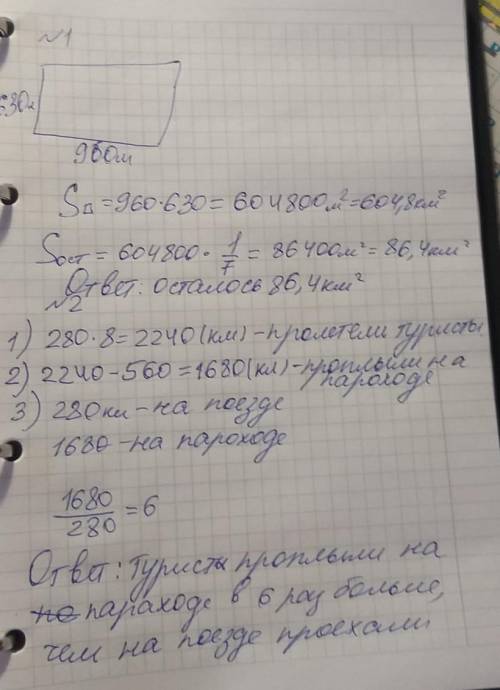 №1
630м
960м
S▱ = 960·630 = 604800м² = 604,8км²
Sост = 604800 · 1/7 = 86400м² = 86,4км²
Ответ: осталось 86,4км²
№2
1) 280·8=2240(км)-пролетели туристы
2) 2240-560=1680(км)-проплыли на
пароходе
3) 280км-на поезде
1680-на пароходе
1680/280 = 6
Ответ: туристы проплыли на
параходе в 6 раз больше,
чем на поезде проехали